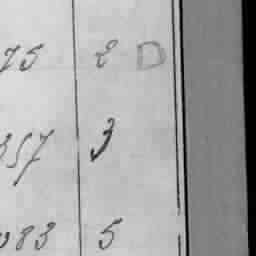 75 2 D
357 3
083 5